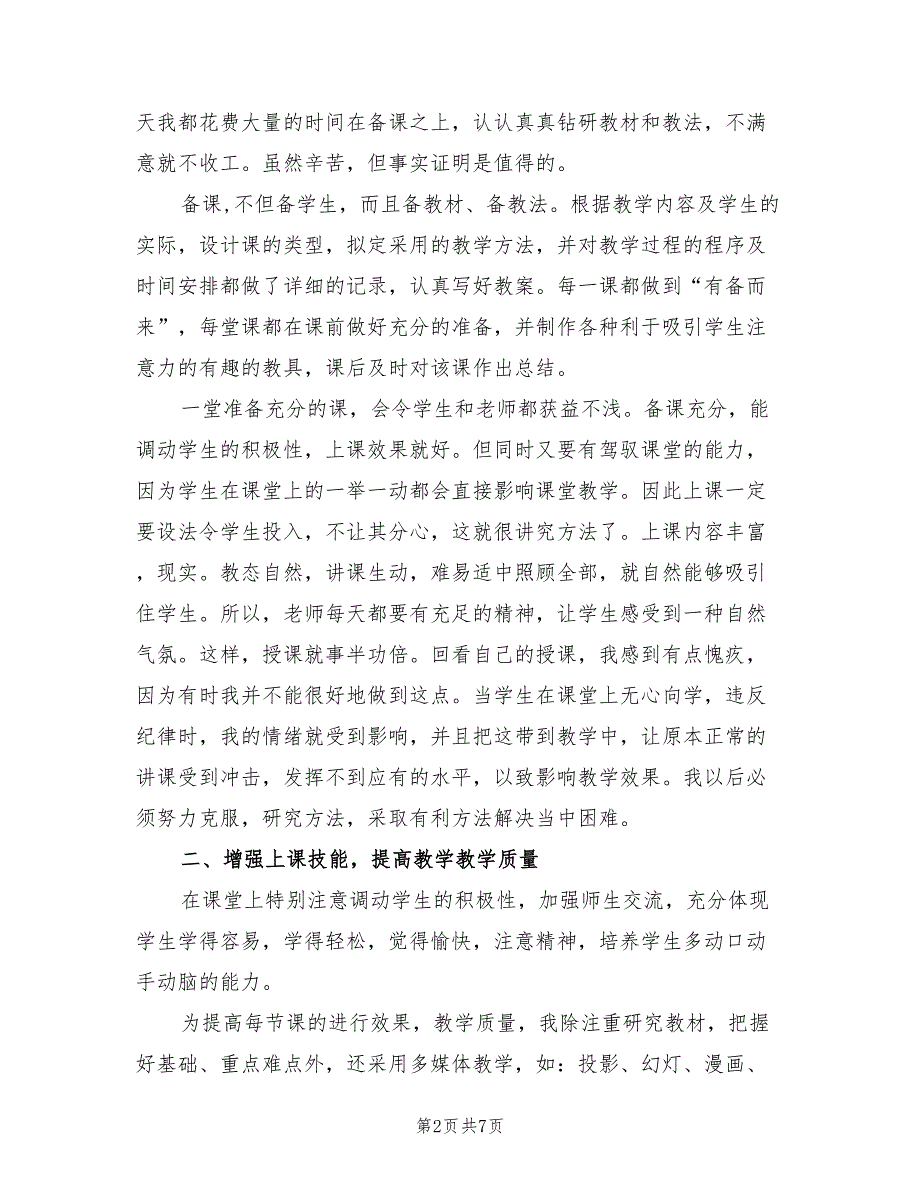 天我都花费大量的时间在备课之上，认认真真钻研教材和教法，不满
意就不收工。虽然辛苦，但事实证明是值得的。
备课,不但备学生，而且备教材、备教法。根据教学内容及学生的
实际，设计课的类型，拟定采用的教学方法，并对教学过程的程序及
时间安排都做了详细的记录，认真写好教案。每一课都做到“有备而
来”，每堂课都在课前做好充分的准备，并制作各种利于吸引学生注
意力的有趣的教具，课后及时对该课作出总结。
一堂准备充分的课，会令学生和老师都获益不浅。备课充分，能
调动学生的积极性，上课效果就好。但同时又要有驾驭课堂的能力，
因为学生在课堂上的一举一动都会直接影响课堂教学。因此上课一定
要设法令学生投入，不让其分心，这就很讲究方法了。上课内容丰富
，现实。教态自然，讲课生动，难易适中照顾全部，就自然能够吸引
住学生。所以，老师每天都要有充足的精神，让学生感受到一种自然
气氛。这样，授课就事半功倍。回看自己的授课，我感到有点愧疚，
因为有时我并不能很好地做到这点。当学生在课堂上无心向学，违反
纪律时，我的情绪就受到影响，并且把这带到教学中，让原本正常的
讲课受到冲击，发挥不到应有的水平，以致影响教学效果。我以后必
须努力克服，研究方法，采取有利方法解决当中困难。
二、增强上课技能，提高教学教学质量
在课堂上特别注意调动学生的积极性，加强师生交流，充分体现
学生学得容易，学得轻松，觉得愉快，注意精神，培养学生多动口动
手动脑的能力。
为提高每节课的进行效果，教学质量，我除注重研究教材，把握
好基础、重点难点外，还采用多媒体教学，如：投影、幻灯、漫画、
第2页共7页